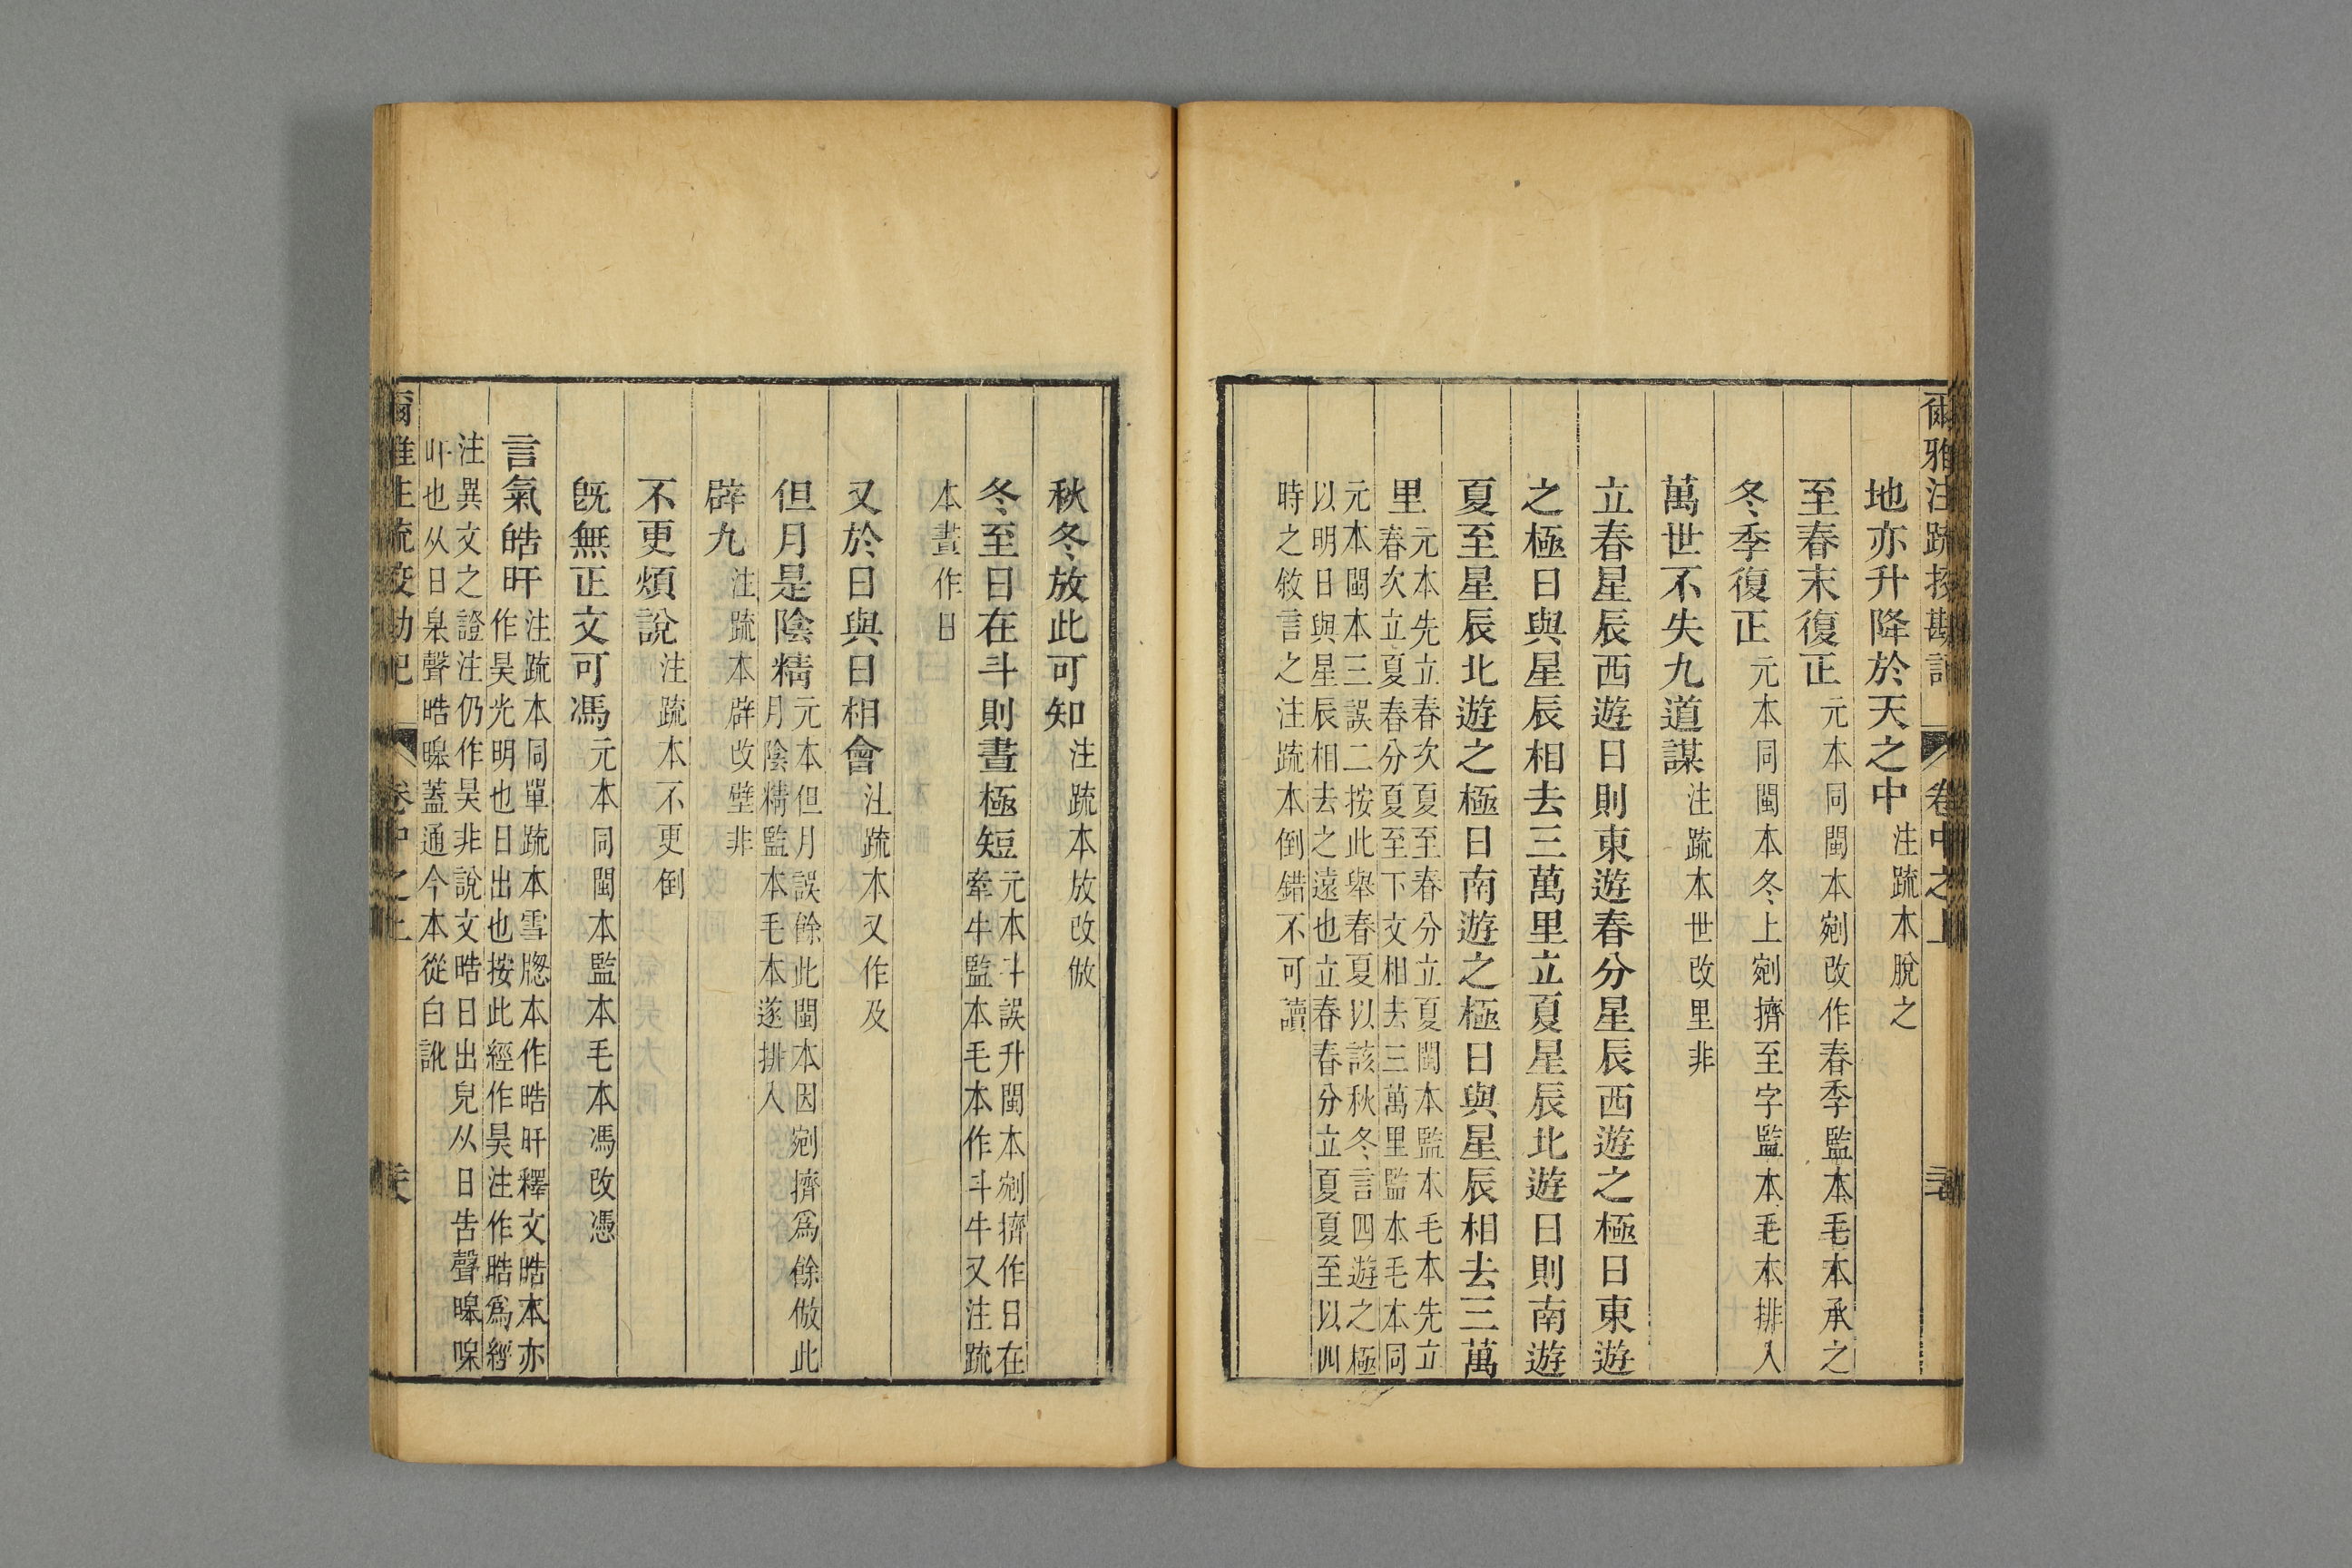 爾雅注疏挍勘記 卷中之上
地亦升降於天之中 注疏本脫之
至春末復正 元本同閩本剜改作春季監本毛本承之
冬季復正 元本同閩本冬上剜擠至字監本毛本排入
萬世不失九道謀 注疏本世改里非
立春星辰西遊日則東遊春分星辰西遊之極日東遊
之極日與星辰相去三萬里立夏星辰北遊日則南遊
夏至星辰北遊之極日南遊之極日與星辰相去三萬
里 元本先立春次夏至春分立夏閩本監本毛本先立
春次立夏春分夏至下文相去三萬里監本毛本同
元本閩本三誤二按此舉春夏以該秋冬言四遊之極
以明日與星辰相去之遠也立春春分立夏夏至以四
時之敘言之注疏本倒錯不可讀
秋冬放此可知 注疏本放改倣
冬至日在斗則晝極短 元本斗誤升閩本剜擠作日在
牽牛監本毛本作斗牛又注疏
本晝作日
又於日與日相會 注疏本又作及
但月是陰精 元本但月誤餘此閩本因剜擠爲餘倣此
月陰精監本毛本遂排入
辟九 注疏本辟改壁非
不更煩說 注疏本不更倒
旣無正文可馮 元本同閩本監本毛本馮改憑
言氣皓旰 注疏本同單疏本雪牎本作晧旰釋文晧本亦
作昊光明也日出也按此經作昊注作晧爲經
注異文之證注仍作昊非說文晧日出皃从日告聲暤暭
旰也从日臯聲晧暤蓋通今本從白訛
爾雅注疏挍勘記 卷中之上